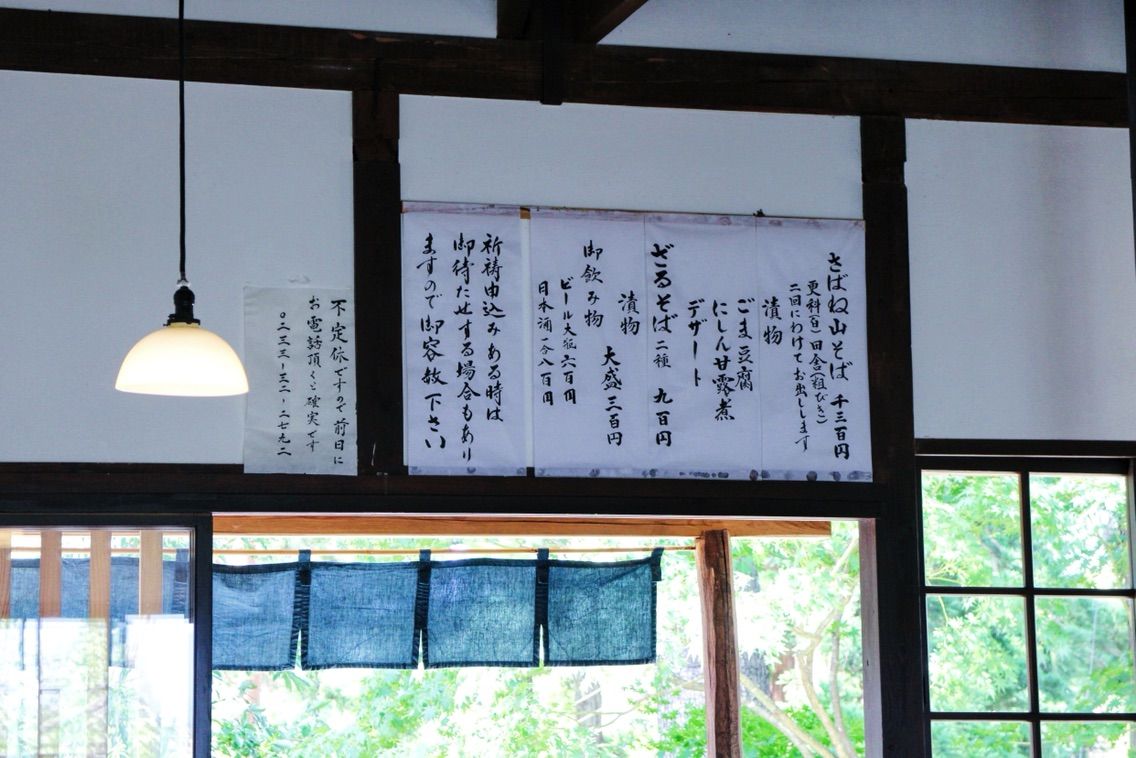 さばね山そば 千三百円
更科(白)田舎(粗びき)
二回にわけてお出しします
漬物
ごま豆腐
にしん甘露煮
デザート
ざるそば 二種 九百円
漬物 大盛三百円
御飲み物
ビール大瓶六百円
日本酒一合八百円
祈祷申込みある時は
御待たせする場合もあり
ますので御容赦下さい
不定休ですので前日に
お電話頂くと確実です
〇二三三-三二-二七九二